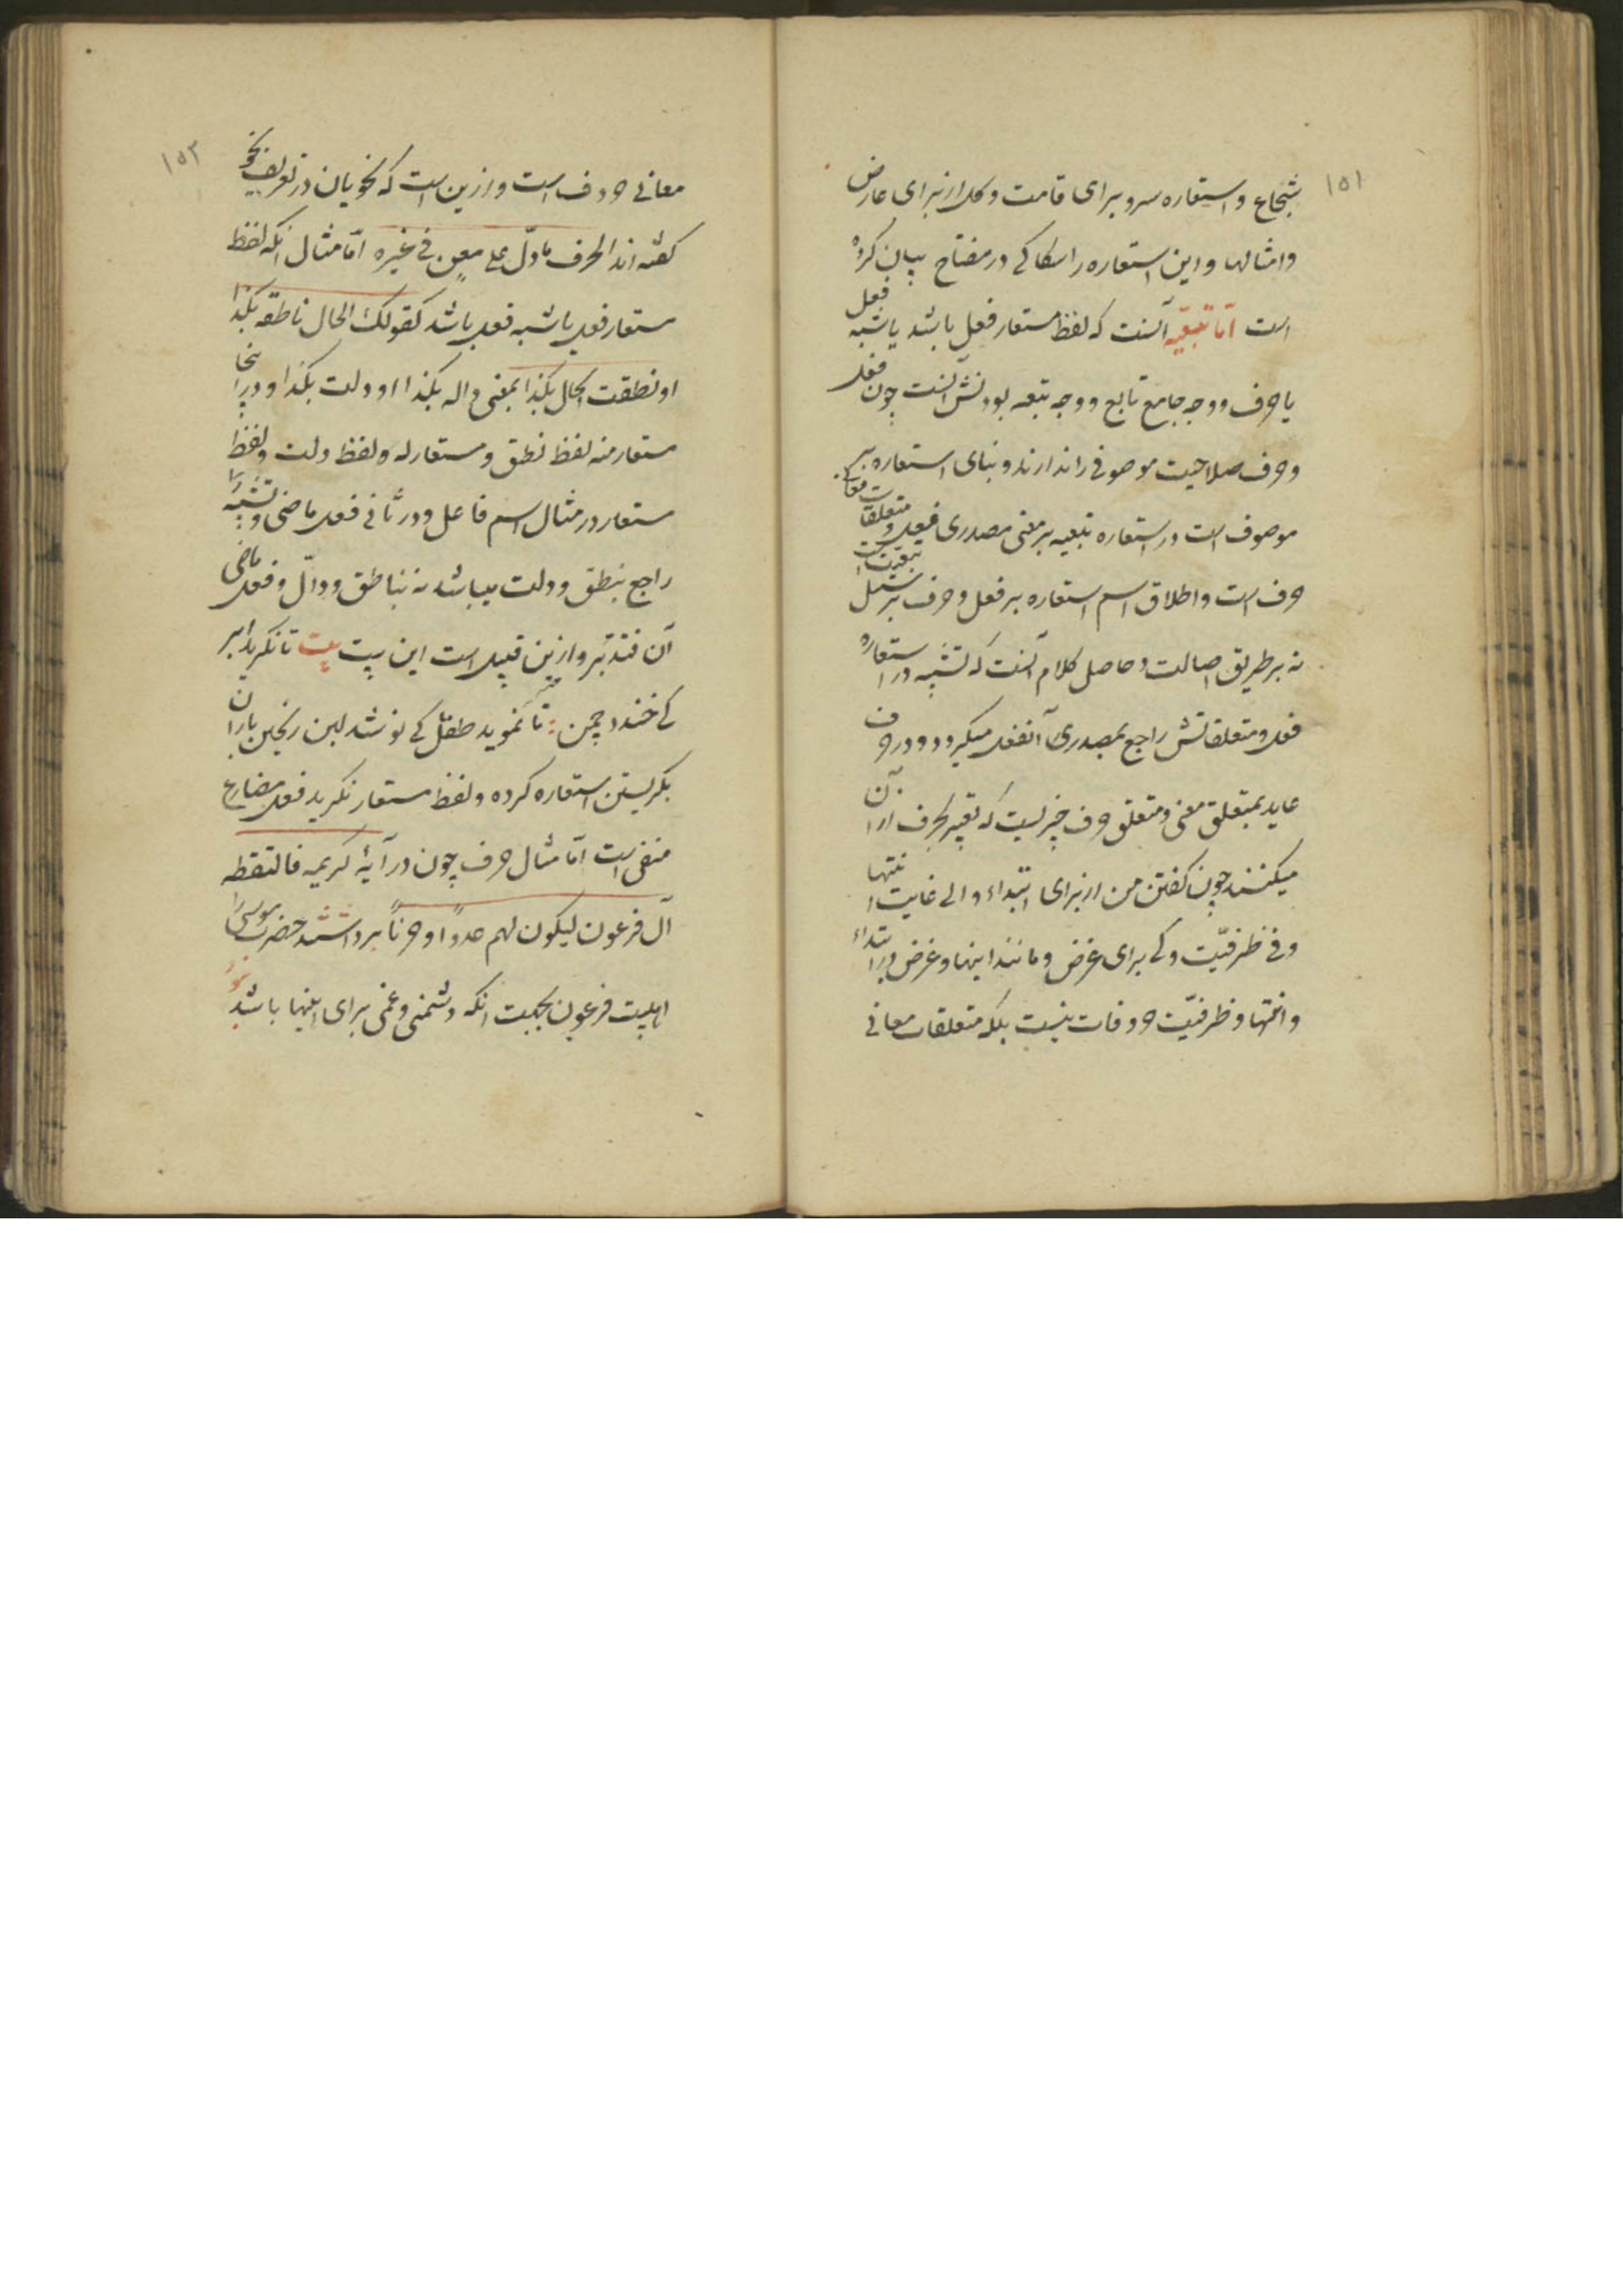 ۱۵۱
شجاع و استعاره سرو برای قامت و گل از برای عارض
و امثالها و این استعاره را سکاکی در مفتاح بیان کرده
است اما تبعیّه آنست که لفظ مستعار فعل باشد یا شبه فعل
یا حرف و وجه جامع تابع و وجه تبعیه بودنش آنست چون فعل
و حرف صلاحیت موصوفی را ندارند و بنای استعاره بر
موصوف است در استعاره تبعیه بر معنی مصدری فعل و متعلقات معانی
حرف است و اطلاق اسم استعاره بر فعل و حرف بر سبیل تبعیت است
نه بر طریق اصالت و حاصل کلام آنست که تشبیه در استعاره
فعل و متعلقاتش راجع بمصدری آنفعل میگردد و در حرف
عاید بمتعلق معنی و متعلق حرف چیزیست که تعبیر بحرف از آن
میکنند چون گفتن من از برای ابتداء و الی غایت انتها
و فی ظرفیّت و کی برای غرض و مانند اینها و غرض و ابتداء
و انتها و ظرفیّت حروفات نیست بلکه متعلقات معانی
۱۵۲
معانی حروف است و ازین است که نحویان در تعریف نحو
گفته اند الحرف ما دلّ علی معنٍ فی غیره امّا مثال انکه لفظ
مستعار فعل یا شبه فعل باشد کقولک الحال ناطقه بکذا
او نطقت الحال بکذا بمعنی داله بکذا او دلت بکذا و در اینجا
مستعار منه لفظ نطق و مستعار له و لفظ دلت و لفظ
مستعار در مثال اسم فاعل و در ثانی فعل ماضی و تشبیه را
راجع بنطق و دلت میباشد نه بناطق و دالّ و فعل ماضی
آن فتدبّر و ازین قبیل است این بیت بیت تا نگرید ابر
کی خندد چمن : تا نموید طفل کی نوشد لبن ریختن باران
بگریستن استعاره کرده و لفظ مستعار نگرید فعل مضارع
منفی است امّا مثال حرف چون در آیهٔ کریمه فالتقطه
آل فرعون لیکون لهم عدوّاً و حزناً برداشتند حضرت موسی را
اهلبیت فرعون بجهت انکه دشمنی و غمی برای اینها باشد